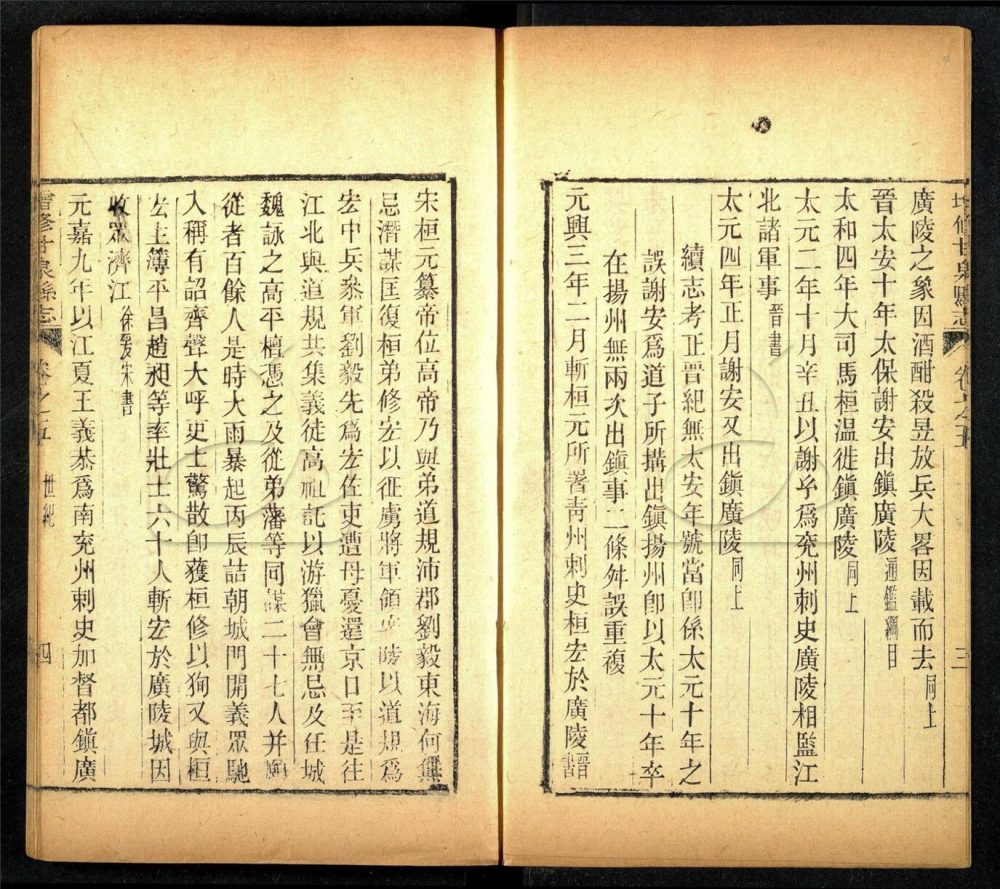 增修甘泉縣志 卷之五 三
廣陵之象因酒酣殺昱放兵大畧因載而去同上
晉太安十年太保謝安出鎭廣陵通鑑綱目
太和四年大司馬桓温徙鎭廣陵同上
太元二年十月辛丑以謝𤣥爲兖州刺史廣陵相監江
北諸軍事晉書
太元四年正月謝安又出鎭廣陵同上
續志考正晉紀無太安年號當卽係太元十年之
誤謝安爲道子所搆出鎭揚州卽以太元十年卒
在揚州無兩次出鎭事二條舛誤重複
元興三年二月斬桓元所署青州刺史桓宏於廣陵晉書
宋桓元纂帝位高帝乃與弟道規沛郡劉毅東海何無
忌潛謀匡復桓弟修宏以征虜將軍領廣陵以道規爲
宏中兵叅軍劉毅先爲宏佐吏遭母憂還京口至是往
江北與道規共集義徒高祖託以游獵會無忌及任城
魏詠之高平檀憑之及從弟藩等同謀二十七人并願
從者百餘人是時大雨暴起丙辰詰朝城門開義眾馳
入稱有詔齊聲大呼吏士驚散卽獲桓修以狥又與桓
宏主薄平昌趙昶等率壯士六十人斬宏於廣陵城因
收眾濟江徐爰宋書
元嘉九年以江夏王義恭爲南兖州剌史加督都鎭廣
增修甘泉縣志 卷之五 世紀 四